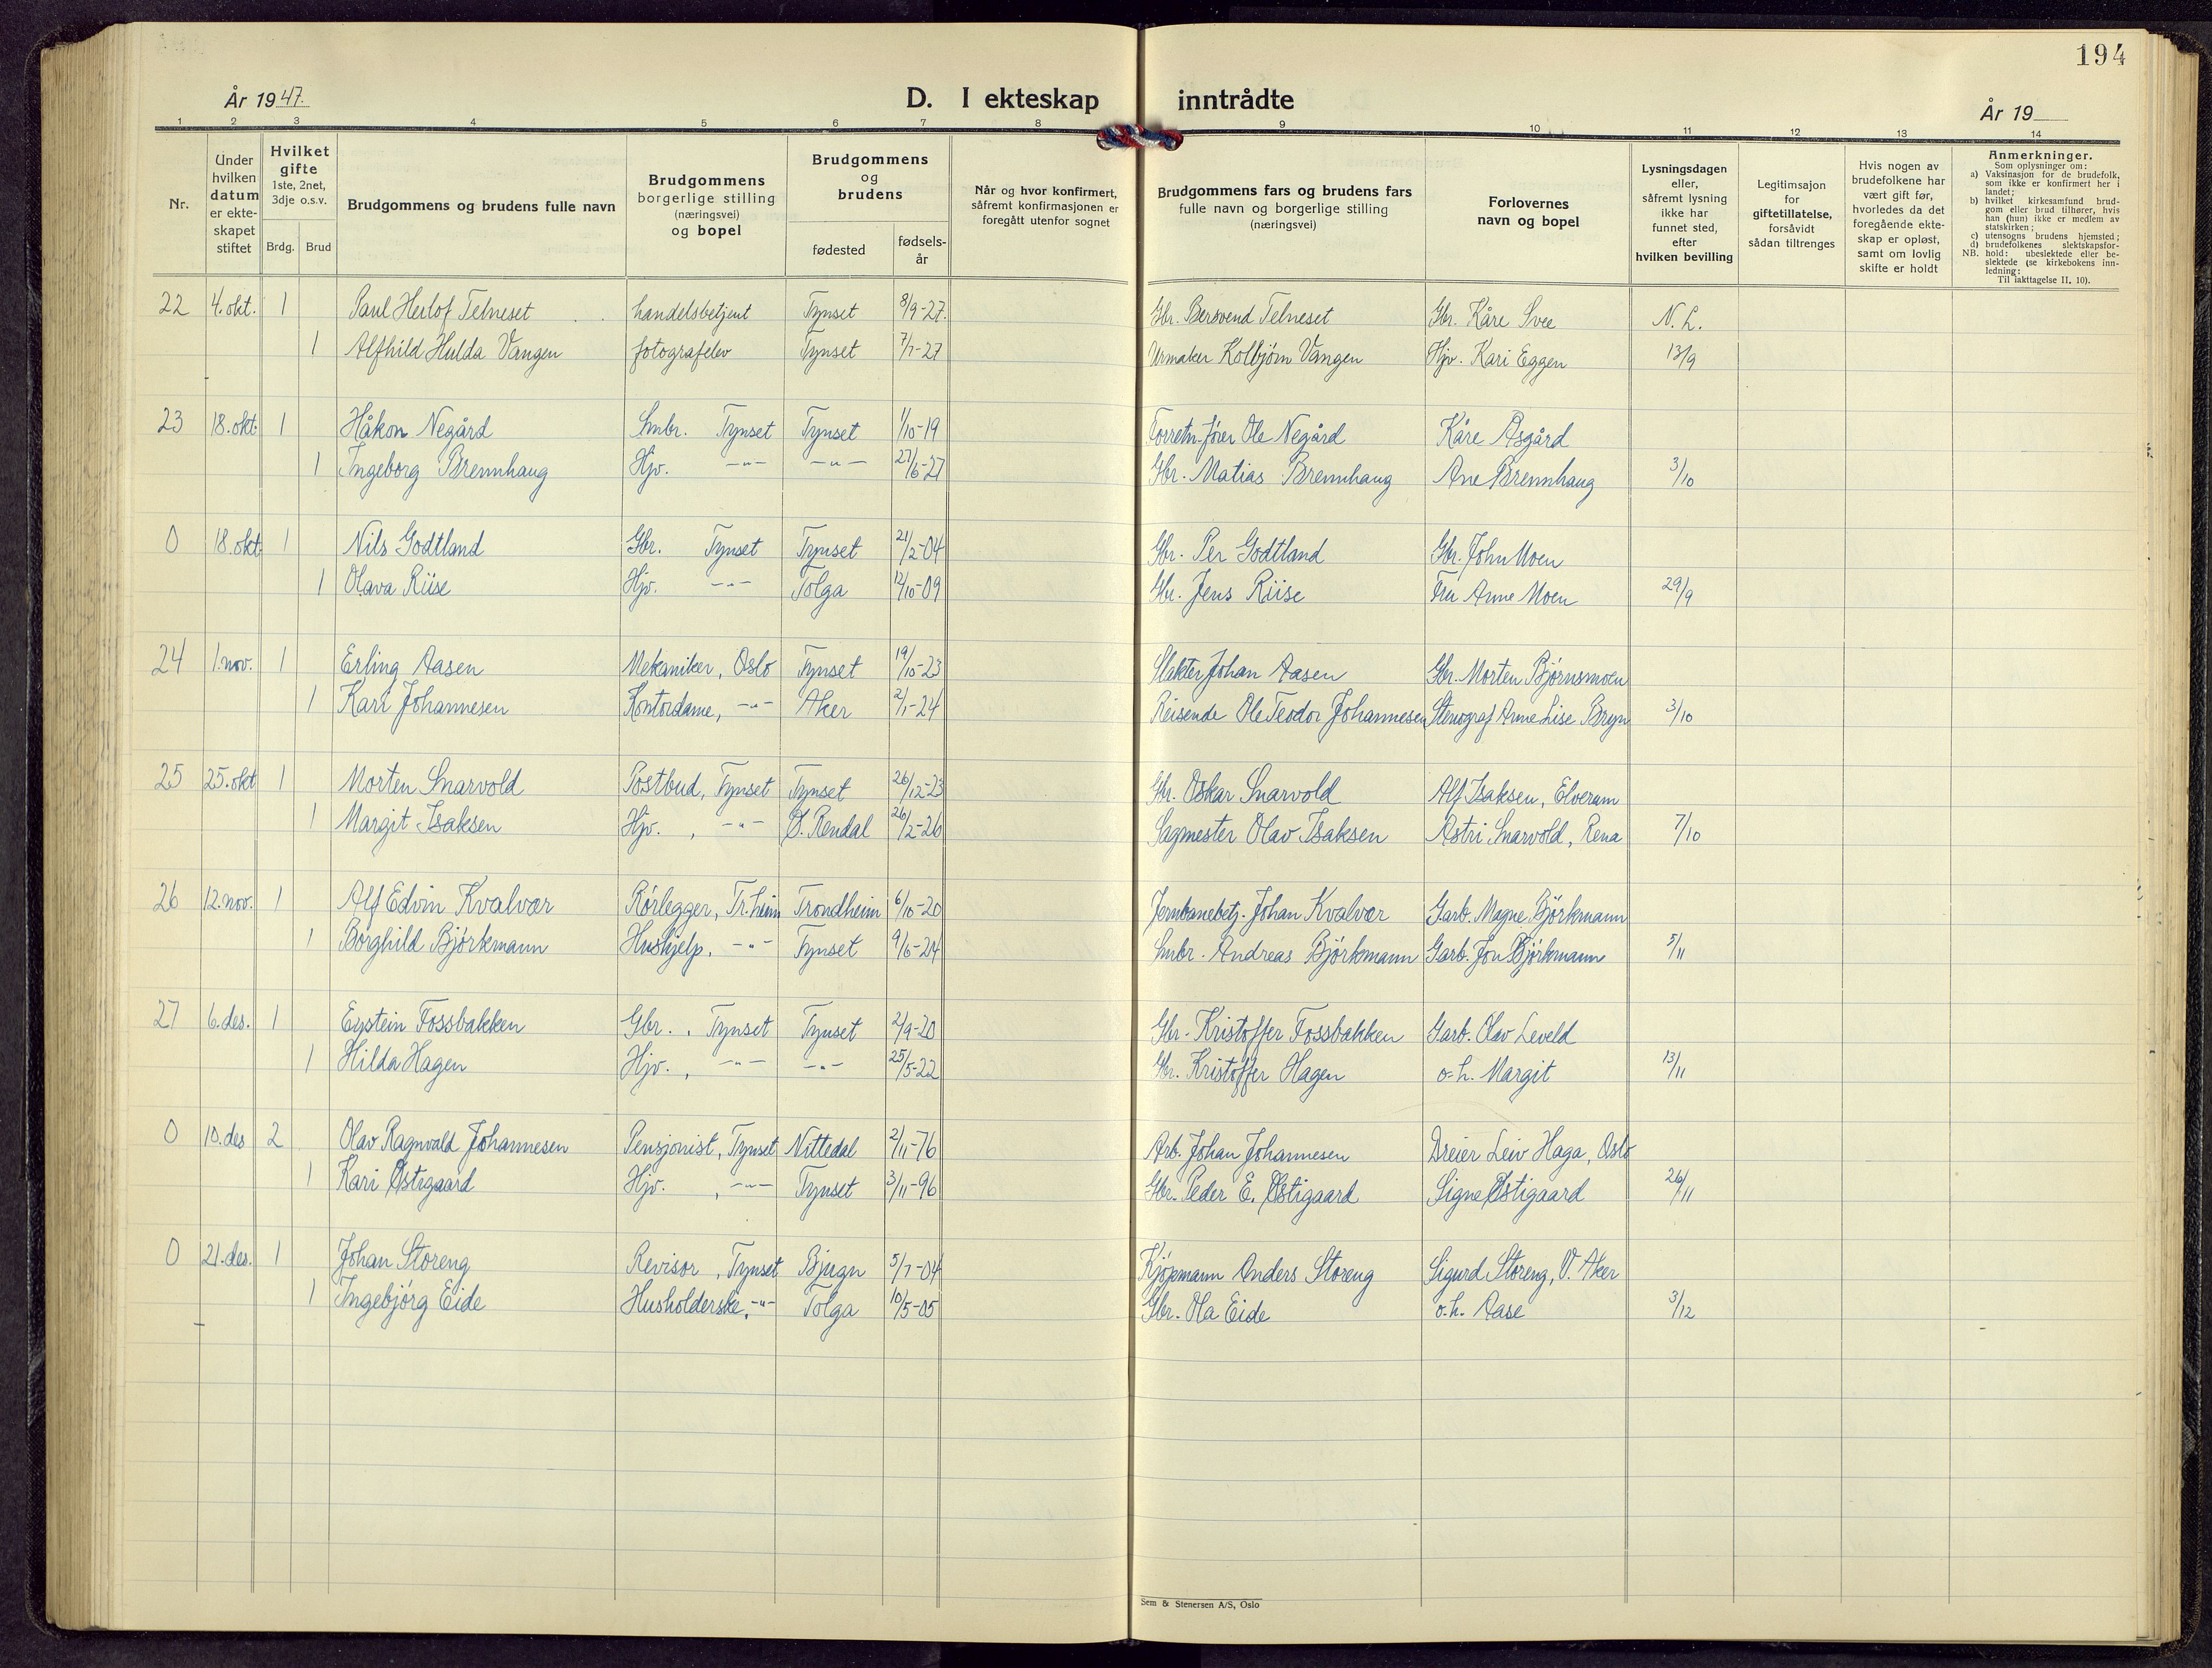 194
År 1947.
D. I ekteskap inntrådte
År 19
1 2 3 4 5 6 7 8 9 10 11 12 13 14
Nr.
Under hvilken datum er ekte-skapet stiftet
Hvilket gifte 1ste, 2net, 3dje o.s.v.
Brdg. Brud
Brudgommens og brudens fulle navn
Brudgommens borgerlige stilling (næringsvei) og bopel
Brudgommens og brudens
fødested
fødsels-år
Når og hvor konfirmert, såfremt konfirmasjonen er foregått utenfor sognet
Brudgommens fars og brudens fars fulle navn og borgerlige stilling (næringsvei)
Forlovernes navn og bopel
Lysningsdagen eller, såfremt lysning ikke har funnet sted, efter hvilken bevilling
Legitimsajon for giftetillatelse, forsåvidt sådan tiltrenges
Hvis nogen av brudefolkene har vært gift før, hvorledes da det foregående ekte-skap er opløst, samt om lovlig skifte er holdt
Anmerkninger.
Som oplysninger om:
a) Vaksinasjon for de brudefolk, som ikke er konfirmert her i landet;
b) hvilket kirkesamfund brud-gom eller brud tilhører, hvis han (hun) ikke er medlem av statskirken;
c) utensogns brudens hjemsted;
d) brudefolkenes slektskapsfor-
NB. hold: ubeslektede eller be-slektede (se kirkebokens inn-ledning:
Til iakttagelse II, 10).
22 4. okt. 1 Paul Herlof Telneset handelsbetjent Tynset 8/9-27. Gbr. Bersvend Telneset Gbr. Kåre Svee N. L.
1 Alfhild Hulda Vangen fotografelev Tynset 7/7-27 Urmaker Kolbjørn Vangen Hjv. Kari Eggen 13/9
23 18. okt. 1 Håkon Negård Smbr. Tynset Tynset 1/10-19 Forretn.fører Ole Negård Kåre Åsgård
1 Ingeborg Brennhaug Hjv. -"- -"- 27/6-27 Gbr. Matias Brennhaug Ane Brennhaug 3/10
0 18. okt 1 Nils Godtland Gbr. Tynset Tynset 21/2-04 Gbr. Per Godtland Gbr. John Moen
1 Olava Riise Hjv. -"- Tolga 12/10-09 Gbr. Jens Riise Fru Anne Moen 29/9
24 1. nov. 1 Erling Aasen Mekaniker, Oslo Tynset 19/10-23 Slakter Johan Aasen Gbr. Morten Bjørnsmoen
1 Kari Johannesen Kontordame, -"- Aker 2/1-24 Reisende Ole Teodor Johannesen Stenograf Anne Lise Bryn 3/10
25 25. okt 1 Morten Snarvold Postbud, Tynset Tynset 26/12-23 Gbr. Oskar Snarvold Alf Isaksen, Elverum
1 Margit Isaksen Hjv. , -"- Ø. Rendal 26/2-26 Sagmester Olav Isaksen Astri Snarvold, Rena 7/10
26 12. nov. 1 Alf Edvin Kvalvær Rørlegger, Tr.heim Trondheim 6/10-20 Jernbanebetj. Johan Kvalvær Garb. Magne Björkmann
1 Borghild Björkmann Hushjelp, -"- Tynset 9/6-24 Smbr. Andreas Björkmann Garb. Jon Björkmann 5/11
27 6. des. 1 Eystein Fossbakken Gbr. , Tynset Tynset 2/9-20 Gbr. Kristoffer Fossbakken Garb. Olav Leveld
1 Hilda Hagen Hjv. , -"- -"- 25/5-22 Gbr. Kristoffer Hagen o.h. Margit 13/11
0 10. des 2 Olav Ragnvald Johannesen Pensjonist, Tynset Nittedal 2/11-76 Arb. Johan Johannesen Dreier Leiv Haga, Oslo
1 Kari Østigaard Hjv. , -"- Tynset 3/11-96 Gbr. Peder E. Østigaard Signe Østigaard 26/11
0 21. des. 1 Johan Storeng Revisor , Tynset Bjugn 5/7-04 Kjøpmann Anders Storeng Sigurd Storeng, V. Aker
1 Ingebjörg Eide Husholderske, -"- Tolga 10/5-05 Gbr. Ola Eide o.h. Aase 3/12
Sem & Stenersen A/S, Oslo